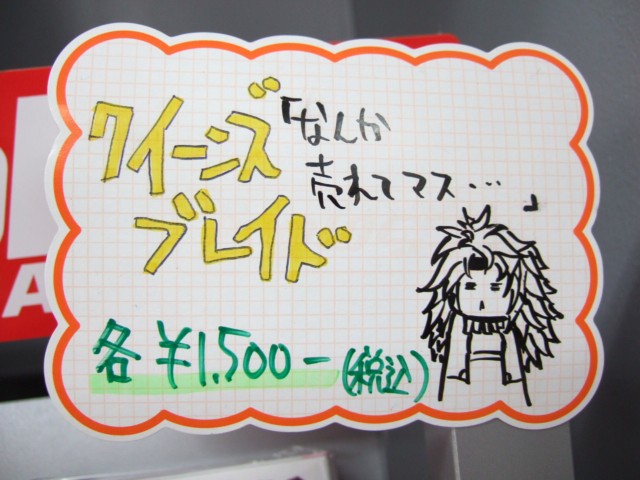 クイーンズ
ブレイド
「なんか
売れてマス…」
各¥1,500-(税込)
A